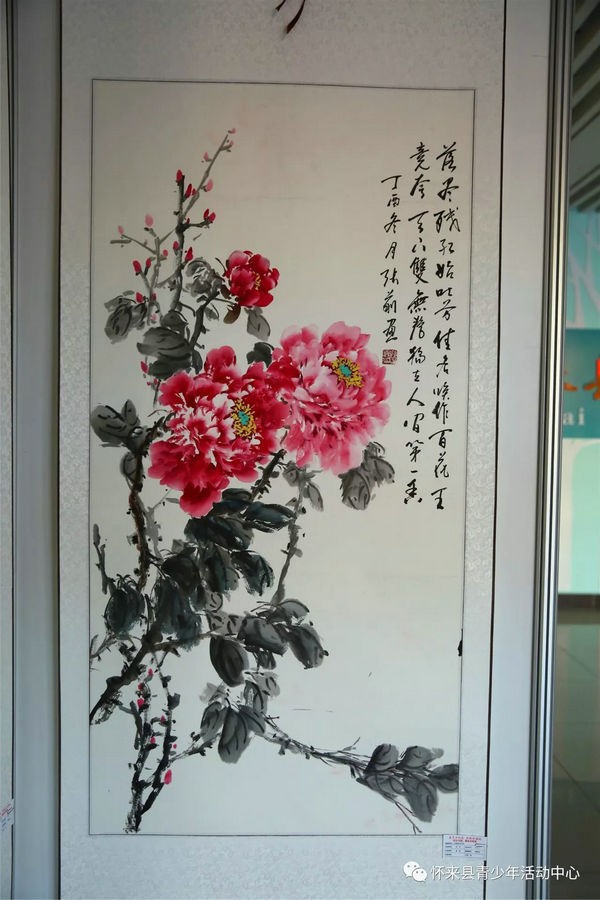 落尽残红始吐芳佳名唤作百花王
竞夸天下双無艳独立人间第一香
丁酉冬月张
画
怀来县青少年活动中心